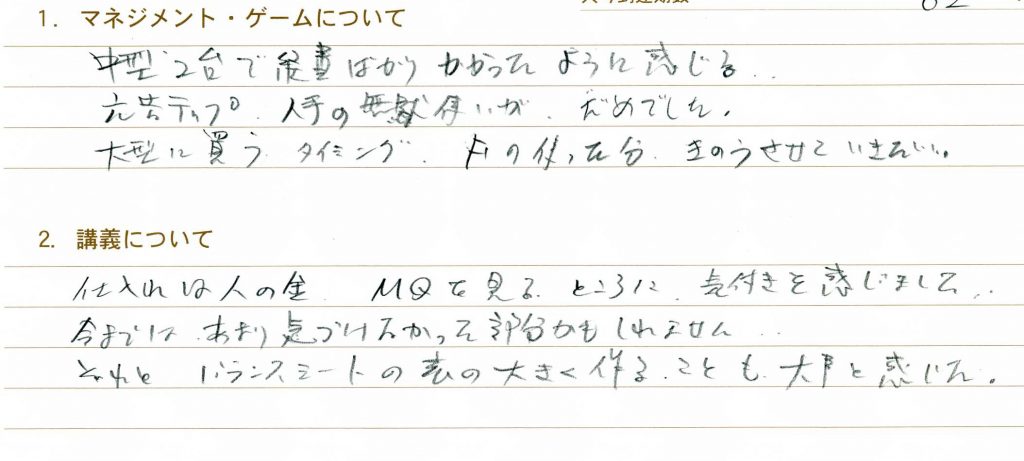 1. マネジメント・ゲームについて
中型2台で経費ばかりかかったように感じる..
広告チップ、人手の無駄使いが、だめでした。
大型に買うタイミング、Fの使った分、きのうさせていきたい。
2. 講義について
仕入れは人の金、MQを見るところに、気付きを感じました..
今までは、あまり気づけなかった部分かもしれません...
それとバランスシートの表の大きく作ることも、大事と感じた。